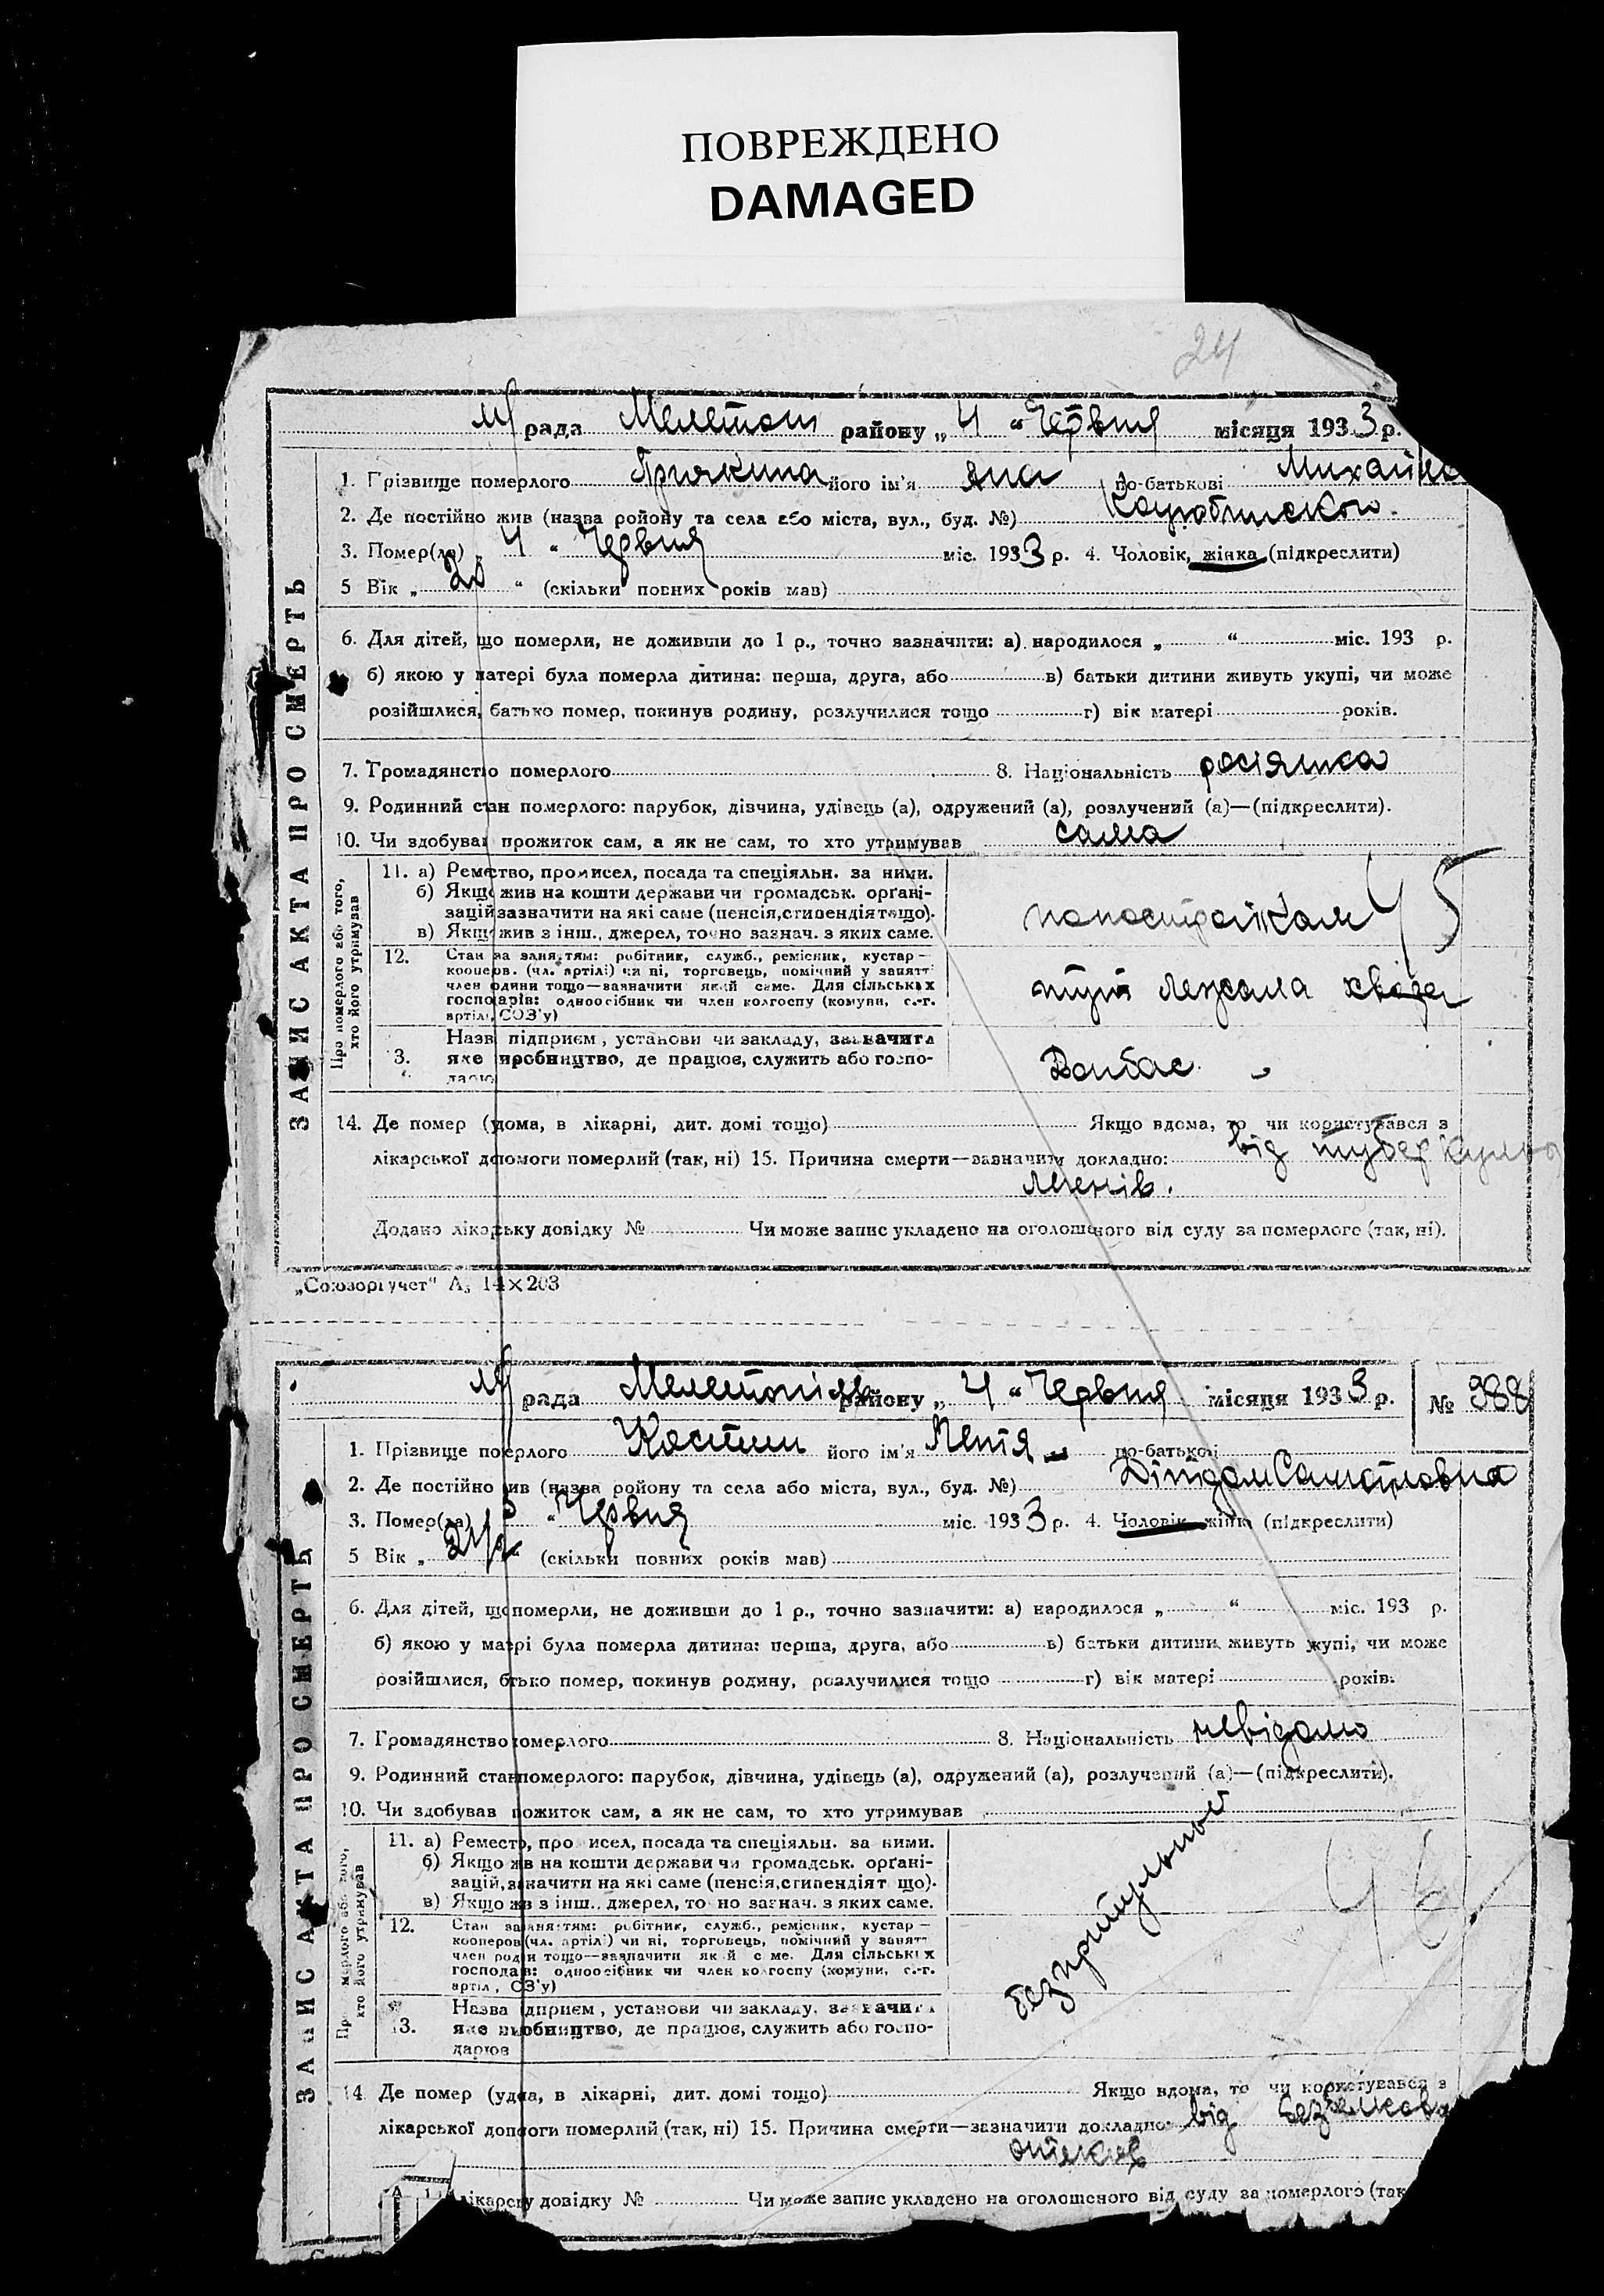 ПОВРЕЖДЕНО
DAMAGED
24
м/ рада Мелетоп району „ 4 “ Червня місяця 1933 р.
1. Прізвище померлого його ім'я Яна по-батькові Михайло
2. Де постійно жив (назва ройону та села або міста, вул., буд. №)
3. Помер(ла) „ 4 “ Червня міс. 1933 р. 4. Чоловік, жінка (підкреслити)
5 Вік „ 20 “ (скільки повних років мав)
6. Для дітей, що померли, не доживши до 1 р., точно зазначити: а) народилося „ “ міс. 193 р.
б) якою у матері була померла дитина: перша, друга, або в) батьки дитини живуть укупі, чи може
розійшлися, батько помер, покинув родину, розлучилися тощо г) вік матері років.
7. Громадянство померлого 8. Національність росіянка
9. Родинний стан померлого: парубок, дівчина, удівець (а), одружений (а), розлучений (а)—(підкреслити).
10. Чи здобував прожиток сам, а як не сам, то хто утримував сама
Про померлого або того, хто його утримував
11. а) Ремество, промисел, посада та спеціяльн. за ними.
б) Якщо жив на кошти держави чи громадськ. орґані-
зацій зазначити на які саме (пенсія, стипендія тощо).
в) Якщо жив з інш., джерел, точно зазнач. з яких саме.
45
12. Стан за заняттям: робітник, служб., ремісник, кустар—
кооперов. (чл. артілі) чи ні, торговець, помічний у занятт
член родини тощо—зазначити який саме. Для сільських
господарів: одноосібник чи член колгоспу (комуни, с.-г.
артілі, СОЗ'у)
тут лежала хвора
13. Назва підприєм., установи чи закладу, зазначити
яке виробництво, де працює, служить або госпо-
дарює
Донбас
14. Де помер (удома, в лікарні, дит. домі тощо) Якщо вдома, то чи користувався з
лікарської допомоги померлий (так, ні) 15. Причина смерти—зазначити докладно: від туберкульо
легенів.
Додано лікарську довідку № Чи може запис укладено на оголошеного від суду за померлого (так, ні).
ЗАПИС АКТА ПРО СМЕРТЬ
„Союзоргучет“ А₅ 14×203
м/ рада Мелетопіль району „ 4 “ Червня місяця 1933 р. № 988
1. Прізвище померлого Костин його ім'я Петя — по-батькові
2. Де постійно жив (назва ройону та села або міста, вул., буд. №)
3. Помер(ла) 3 “ Червня міс. 1933 р. 4. Чоловік, жінка (підкреслити)
5 Вік „ 2 1/2 “ (скільки повних років мав)
6. Для дітей, що померли, не доживши до 1 р., точно зазначити: а) народилося „ “ міс. 193 р.
б) якою у матері була померла дитина: перша, друга, або в) батьки дитини живуть укупі, чи може
розійшлися, батько помер, покинув родину, розлучилися тощо г) вік матері років.
7. Громадянство померлого 8. Національність невідомо
9. Родинний стан померлого: парубок, дівчина, удівець (а), одружений (а), розлучений (а)—(підкреслити).
10. Чи здобував прожиток сам, а як не сам, то хто утримував
Про померлого або того, хто його утримував
11. а) Ремество, промисел, посада та спеціяльн. за ними.
б) Якщо жив на кошти держави чи громадськ. орґані-
зацій, зазначити на які саме (пенсія, стипендія тощо).
в) Якщо жив з інш., джерел, точно зазнач. з яких саме.
46
12. Стан за заняттям: робітник, служб., ремісник, кустар—
кооперов. (чл. артілі) чи ні, торговець, помічний у занятт
член родини тощо—зазначити який саме. Для сільських
господарів: одноосібник чи член колгоспу (комуни, с.-г.
артілі, СОЗ'у)
безпритульный
13. Назва підприєм., установи чи закладу, зазначити
яке виробництво, де працює, служить або госпо-
дарює
14. Де помер (удома, в лікарні, дит. домі тощо) Якщо вдома, то чи користувався з
лікарської допомоги померлий (так, ні) 15. Причина смерти—зазначити докладно: від безбелкова
отеков
лікарську довідку № Чи може запис укладено на оголошеного від суду за померлого (так
ЗАПИС АКТА ПРО СМЕРТЬ